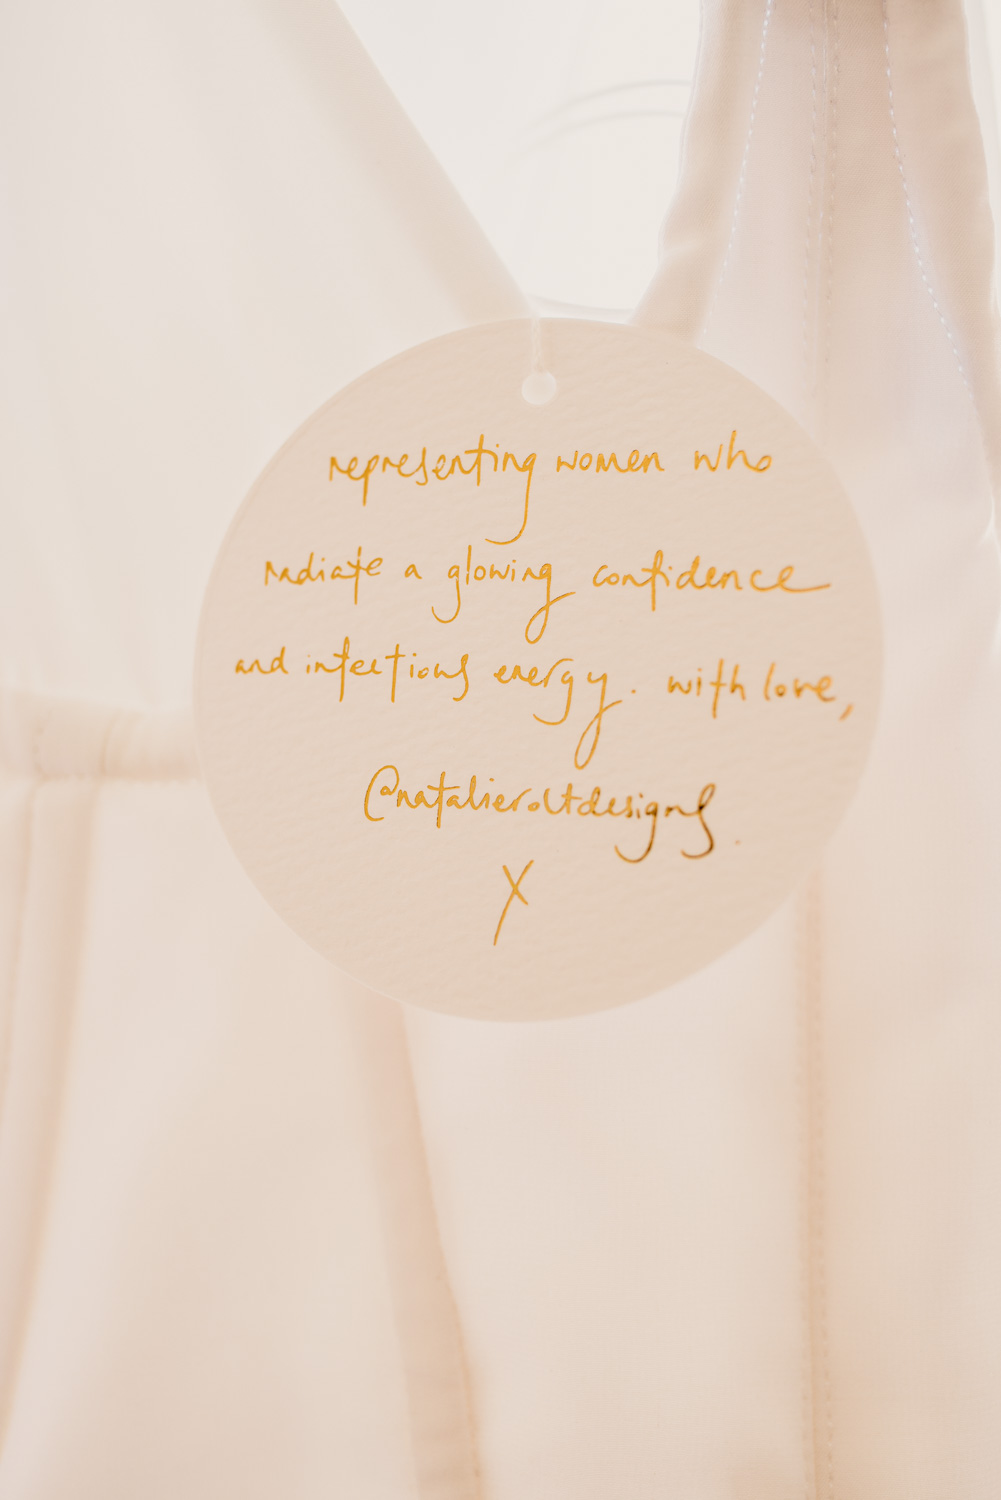 representing women who
radiate a glowing confidence
and infectious energy. with love,
@natalieroltdesigns.
X